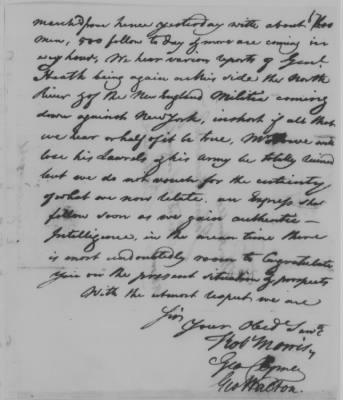 marched from hence yesterday with about 1800
men, 500 follow to day & more are coming in
every hour, We hear various reports of Genl.
Heath being again on this side the North
River & of the New England Militia coming
down against New York, in short if all that
we hear or half of it be true, Mr Howe will
lose his Laurels & his Army be totaly ruined
but we do not vouch for the certainty
of what we now relate. an Express shall
follow soon as we gain authentic
Intelligence, in the mean time there
is most undoubtedly room to Congratulate
you on the present situation & prospects
With the utmost respect we are
Sir
Your Obedt Servts
Robt Morris
Geo Clymer
Geo Walton.